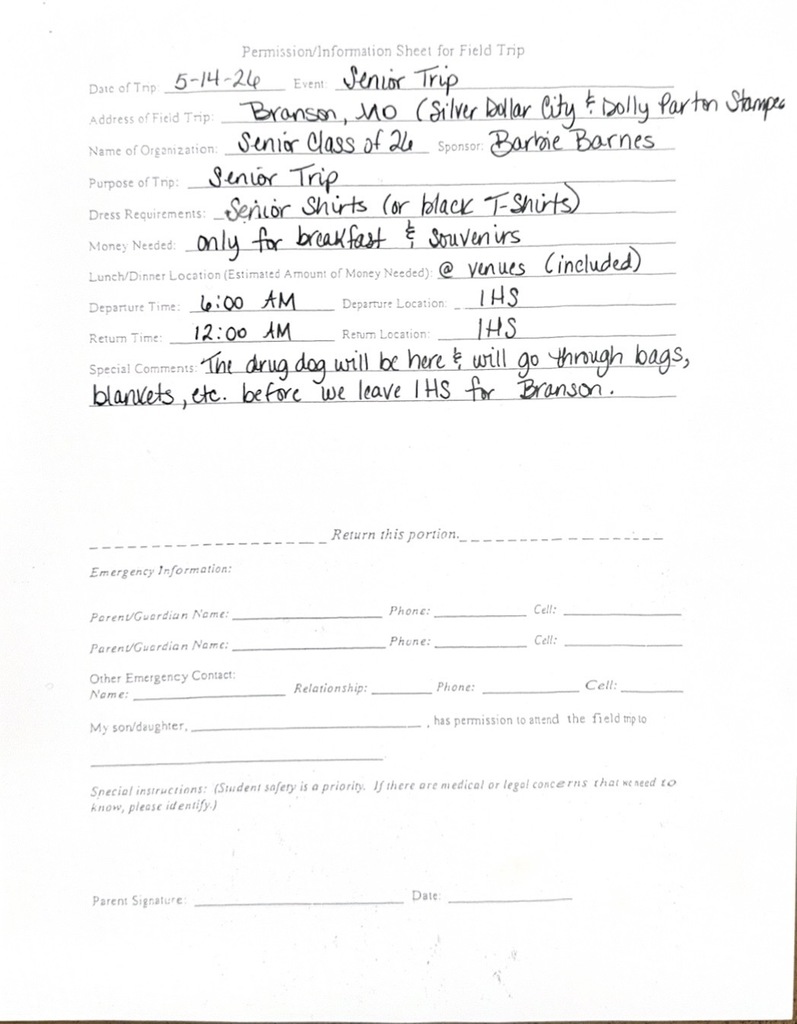 Permission/Information Sheet for Field Trip
Date of Trip: 5-14-26 Event: Senior Trip
Address of Field Trip: Branson, MO (Silver Dollar City & Dolly Parton Stampec
Name of Organization: Senior Class of 26 Sponsor: Barbie Barnes
Purpose of Trip: Senior Trip
Dress Requirements: Senior Shirts (or black T-Shirts)
Money Needed: only for breakfast & souvenirs
Lunch/Dinner Location (Estimated Amount of Money Needed): @ venues (included)
Departure Time: 6:00 AM Departure Location: IHS
Return Time: 12:00 AM Return Location: IHS
Special Comments: The drug dog will be here & will go through bags,
blankets, etc. before we leave IHS for Branson.
Return this portion.
Emergency Information:
Parent/Guardian Name: Phone: Cell:
Parent/Guardian Name: Phone: Cell:
Other Emergency Contact:
Name: Relationship: Phone: Cell:
My son/daughter, , has permission to attend the field trip to
Special instructions: (Student safety is a priority. If there are medical or legal concerns that we need to
know, please identify.)
Parent Signature: Date: